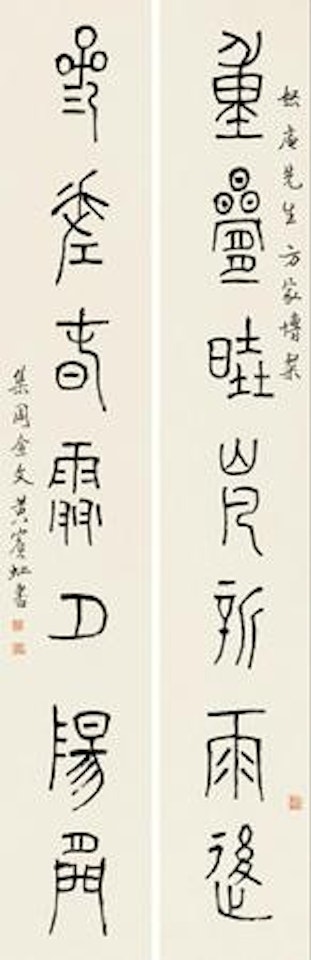 重疊晴嵐新雨後
庵先生方家博粲
參差春雪夕陽間
集周金文黃賓虹書